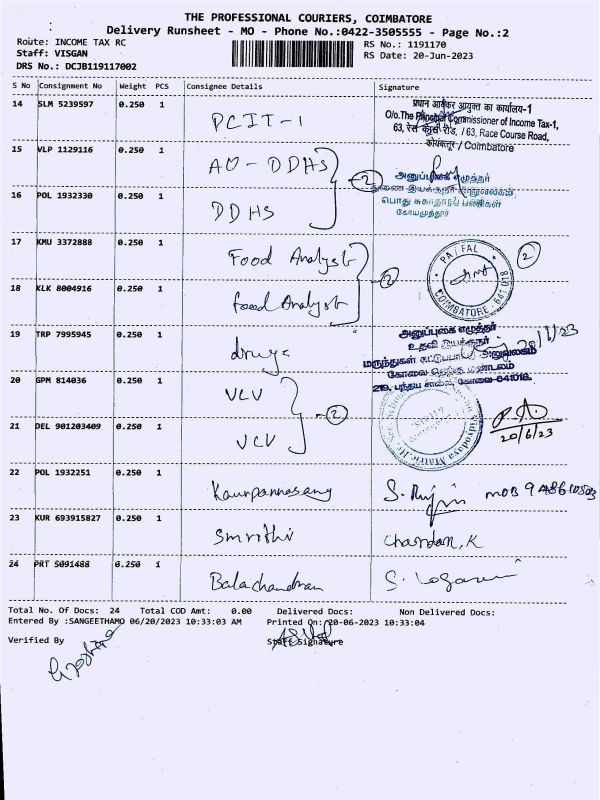 THE PROFESSIONAL COURIERS, COIMBATORE
Delivery Runsheet - MO - Phone No.:0422-3505555 - Page No.:2
Route: INCOME TAX RC
RS No.: 1191170
Staff: VISGAN
RS Date: 20-Jun-2023
DRS No.: DCJB119117002
S No Consignment No Weight PCS Consignee Details Signature
14 SLM 5239597 0.250 1 PCIT-1
प्रधान आयकर आयुक्त का कार्यालय-1
O/o.The Principal Commissioner of Income Tax-1,
63, रेस कोर्स रोड, / 63, Race Course Road,
कोयंबत्तूर / Coimbatore
15 VLP 1129116 0.250 1 AO-DDHS
2
அனுப்புகை எழுத்தர்
பொது சுகாதாரப் பணிகள்
கோயமுத்தூர்
16 POL 1932330 0.250 1 DDHS
17 KMU 3372888 0.250 1 Food Analyst
2
2
COIMBATORE - 641 018
18 KLK 8004916 0.250 1 food Analyst
19 TRP 7995945 0.250 1 drugs
அனுப்புகை எழுத்தர்
உதவி இயக்குநர்
மருந்துகள் கட்டுப்பாட்டு அலுவலகம்
கோவை மண்டலம்
219, பந்தய சாலை, கோவை-641018.
20 GPM 814036 0.250 1 VLV
2
21 DEL 901203409 0.250 1 VCV
20/6/23
22 POL 1932251 0.250 1
MOB
23 KUR 693915827 0.250 1 Smrithi
Chandan, K
24 PRT 5091488 0.250 1 Balachandran
Total No. Of Docs: 24 Total COD Amt: 0.00 Delivered Docs: Non Delivered Docs:
Entered By :SANGEETHAMO 06/20/2023 10:33:03 AM Printed On: 20-06-2023 10:33:04
Verified By
Staff Signature